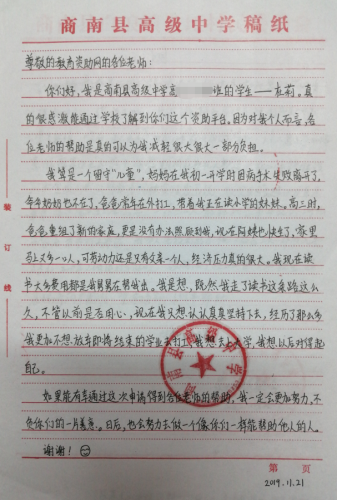 商南县高级中学稿纸
尊敬的教育资助网的各位老师:
你们好,我是商南县高级中学高 班的学生——杜莉。真
的很感激能通过学校了解到你们这个资助平台。因为对我个人而言,各
位老师的帮助是真的可以为我减轻很大很大一部分负担。
我算是一个留守“儿童”,妈妈在我初一开学时因病手术失败离开了,
今年奶奶也不在了,爸爸常年在外打工,带着我正在读小学的妹妹。高二时,
爸爸重组了新的家庭,更是没有办法照顾到我,现在阿姨也快生了,家里
马上又多一口人,可劳动力还是只有爸爸一个人,经济压力真的很大。我现在读
书大多费用都是我舅舅在帮我出。我是想,既然我走了读书这条路这么
久,不管以前是否用心,现在我又想认认真真坚持下去,经历了那么多
我更加不想放弃即将结束的学业去打工,我想去上大学,我想以后对得起
自己。
如果能有幸通过这次申请得到各位老师的帮助,我一定会更加努力,不
负你们的一片善意。日后,也会努力去做一个像你们一样能帮助他人的人。
谢谢!
装订线
商南县高级中学
第 页
2019.11.21